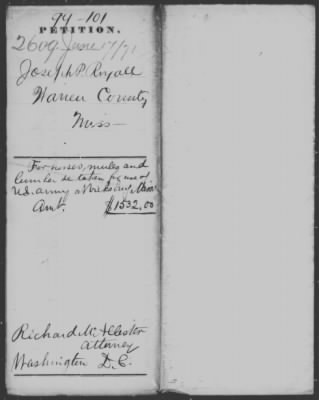 94-101
PETITION.
2609 June 17/71
Joseph P. Ryall
Warren County
Miss-
For horses, mules and
lumber &c taken for use of
U.S. army at Vicksburg Miss
Amt. $1532.00
Richard McAllister
Attorney
Washington D.C.